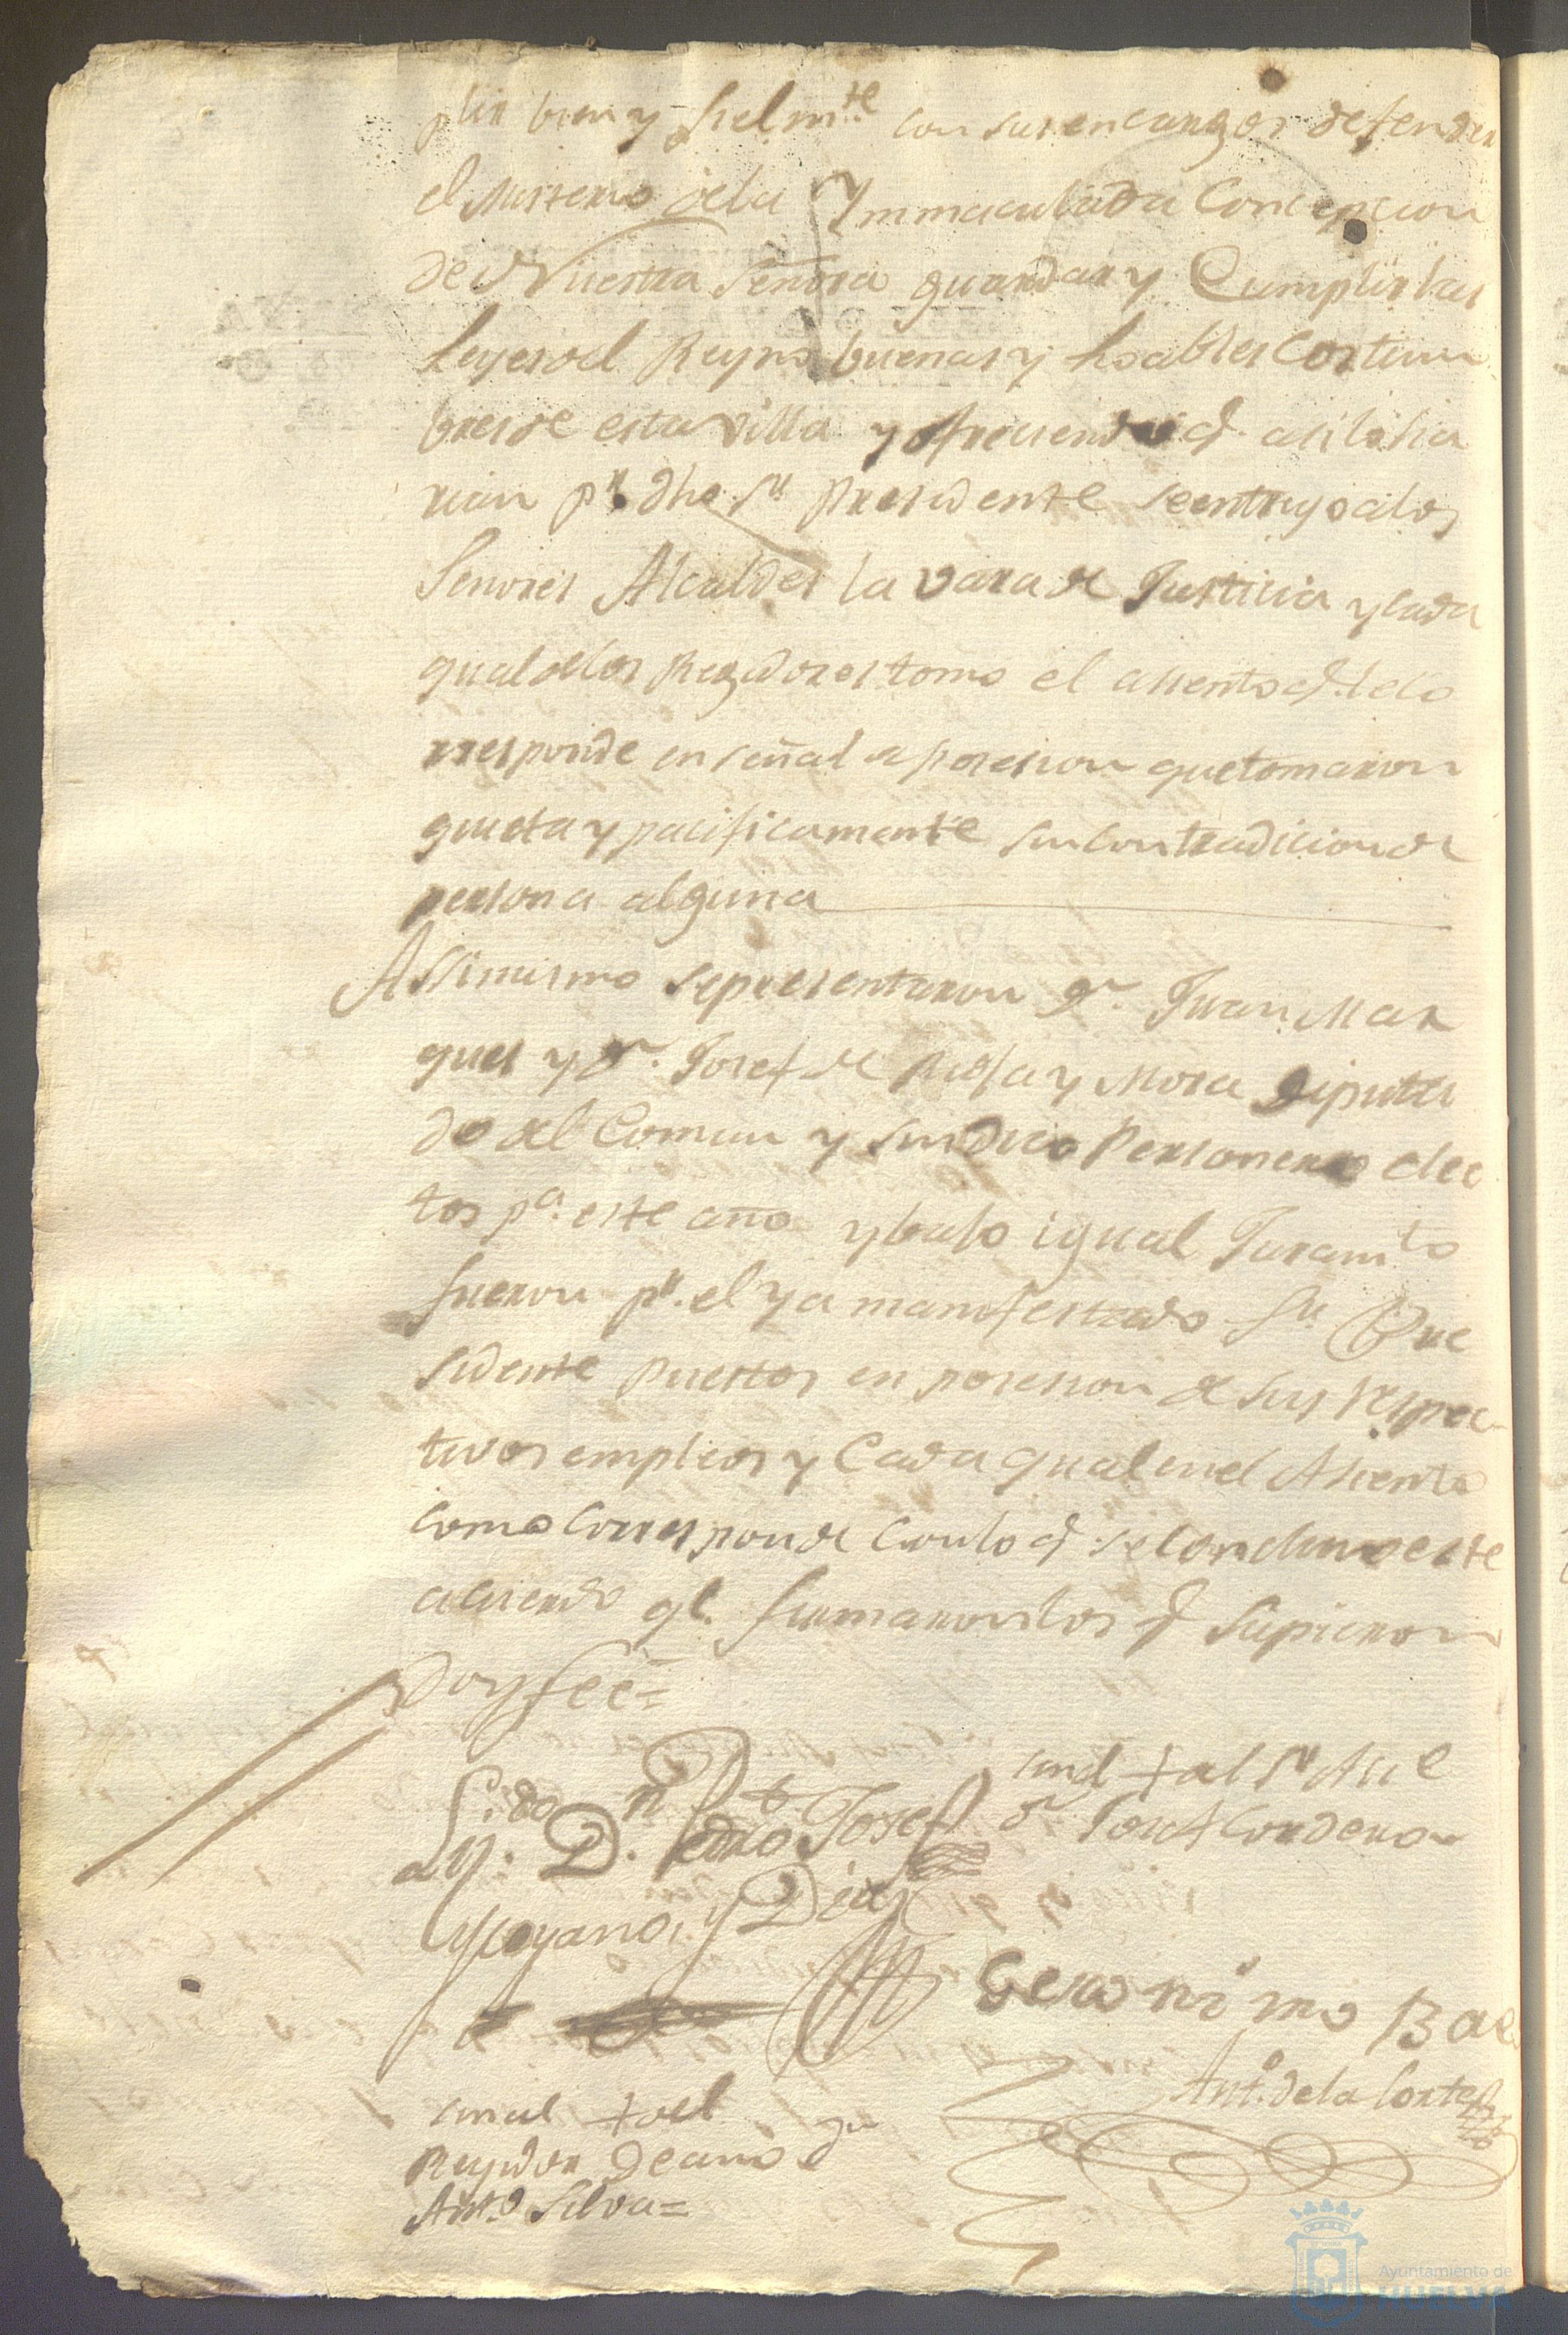 plir bien y fielmte. con sus encargos defender
el Misterio dela Ynmaculada Concepcion
de Nuestra Señora guardar y Cumplir las
Leyes del Reyno buenas y loables Costum
bres de esta villa y ofreciendo q. asi lo ha
rian pr. dho Sr. Presidente se entrego a los
Señores Alcaldes la vara de Justicia y cada
qual de los Regidores tomo el asiento q. le co
rresponde en señal de posesion que tomaron
quieta y pacificamente sin contradicion de
persona alguna
Assimismo se presentaron Dn. Juan Mar
ques y Dn. Josef de y Mora Diputa
do del Comun y sindico Personero elec
tos pa. este año y bajo igual Juramto
fueron pr. el ya manifestado Sr. Pre
sidente puestos en posesion de sus respec
tivos empleos y Cada qual en el Asiento
como corresponde con lo q. se concluyo este
acuerdo ql. firmaron los q. supieron
Doy fee=
Lizdo. Dn. Pedro Josef
Moyano y Diaz
señal + del Sr. Alce
Dn. Josef Cordero
Geronimo Bae
Anto. de la Corte
señal + del
Regidor Decano Dn
Anto. Silva=
Ayuntamiento de
HUELVA